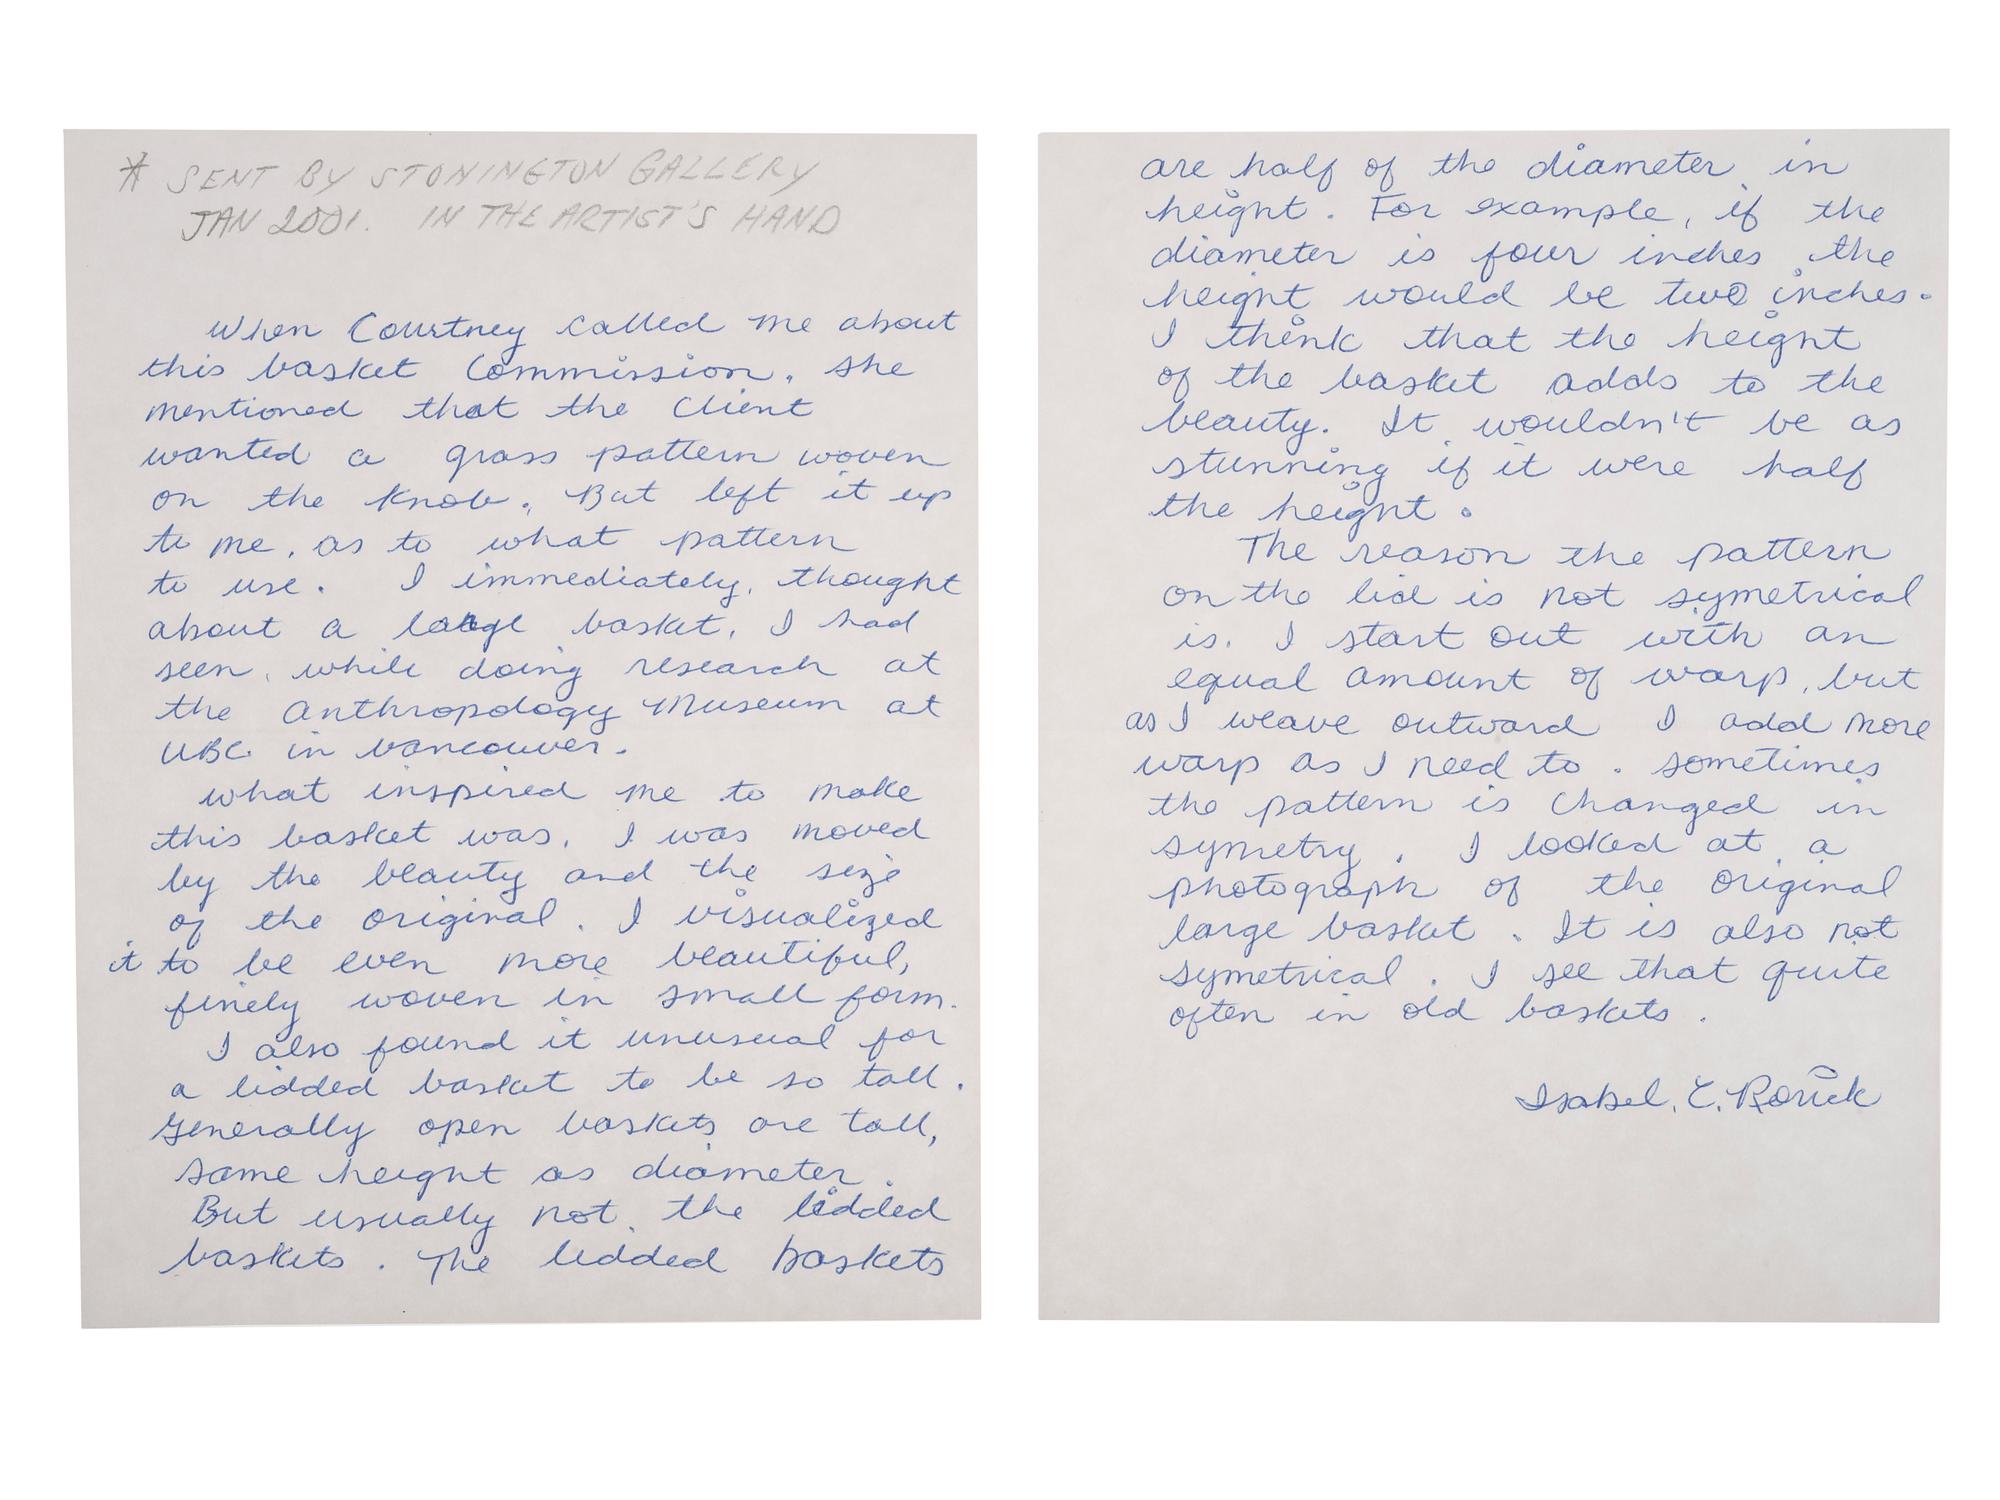 * SENT BY STONINGTON GALLERY
JAN 2001. IN THE ARTIST'S HAND
When Courtney called me about
this basket Commission, she
mentioned that the Client
wanted a grass pattern woven
on the knob. But left it up
to me, as to what pattern
to use. I immediately, thought
about a large basket, I had
seen, while doing research at
the Anthropology Museum at
UBC in Vancouver.
What inspired me to make
this basket was, I was moved
by the beauty and the size
of the original. I visualized
it to be even more beautiful,
finely woven in small form.
I also found it unusual for
a lidded basket to be so tall.
Generally open baskets are tall,
same height as diameter.
But usually not, the lidded
baskets. The lidded baskets
are half of the diameter in
height. For example, if the
diameter is four inches the
height would be two inches.
I think that the height
of the basket adds to the
beauty. It wouldn't be as
stunning if it were half
the height.
The reason the pattern
on the lid is not symetrical
is. I start out with an
equal amount of warp, but
as I weave outward I add more
warp as I need to. Sometimes
the pattern is changed in
symetry. I looked at a
photograph of the original
large basket. It is also not
symetrical. I see that quite
often in old baskets.
Isabel. C. Rorick